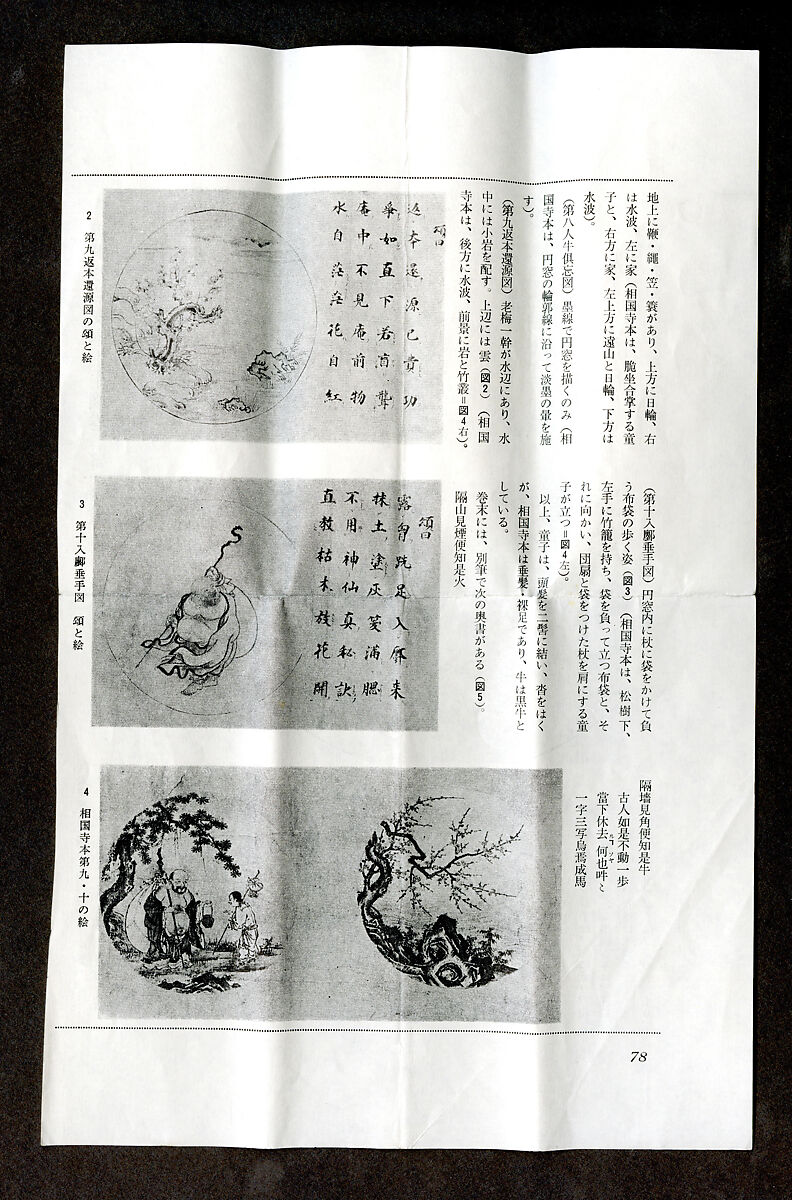 地上に鞭・繩・笠・簑があり、上方に日輪、右
は水波、左に家（相国寺本は、跪坐合掌する童
子と、右方に家、左上方に遠山と日輪、下方は
水波）。
（第八人牛俱忘図）墨線で円窓を描くのみ（相
国寺本は、円窓の輪郭線に沿って淡墨の暈を施
す）。
（第九返本還源図）老梅一幹が水辺にあり、水
中には小岩を配す。上辺には雲（図2）（相国
寺本は、後方に水波、前景に岩と竹叢＝図4右）。
頌曰
返本還源已費功
爭如直下若盲聾
庵中不見庵前物
水自茫茫花自紅
2　第九返本還源図の頌と絵
（第十入鄽垂手図）円窓内に杖に袋をかけて負
う布袋の歩く姿（図3）（相国寺本は、松樹下、
左手に竹籠を持ち、袋を負って立つ布袋と、そ
れに向かい、団扇と袋をつけた杖を肩にする童
子が立つ＝図4左）。
以上、童子は、頭髮を二髻に結い、沓をはく
が、相国寺本は垂髮・裸足であり、牛は黒牛と
している。
巻末には、別筆で次の奥書がある（図5）。
隔山見煙便知是火
頌曰
露胷跣足入鄽来
抹土塗灰笑滿腮
不用神仙真秘訣
直教枯木放花開
3　第十入鄽垂手図　頌と絵
隔墻見角便知是牛
古人如是不動一歩
當下休去何也吽々
一字三写烏焉成馬
4　相国寺本第九・十の絵
78